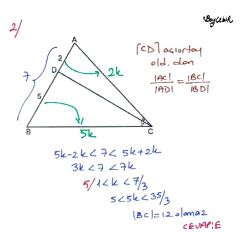 2/
A
2
D
2k
7
5
B
5k
C
[CD] açıortay
old. dan
|AC| / |AD| = |BC| / |BD|
5k-2k < 7 < 5k+2k
3k < 7 < 7k
5/ 1 < k < 7/3
5 < 5k < 35/3
|BC| = 12 olamaz
CEVAP: E